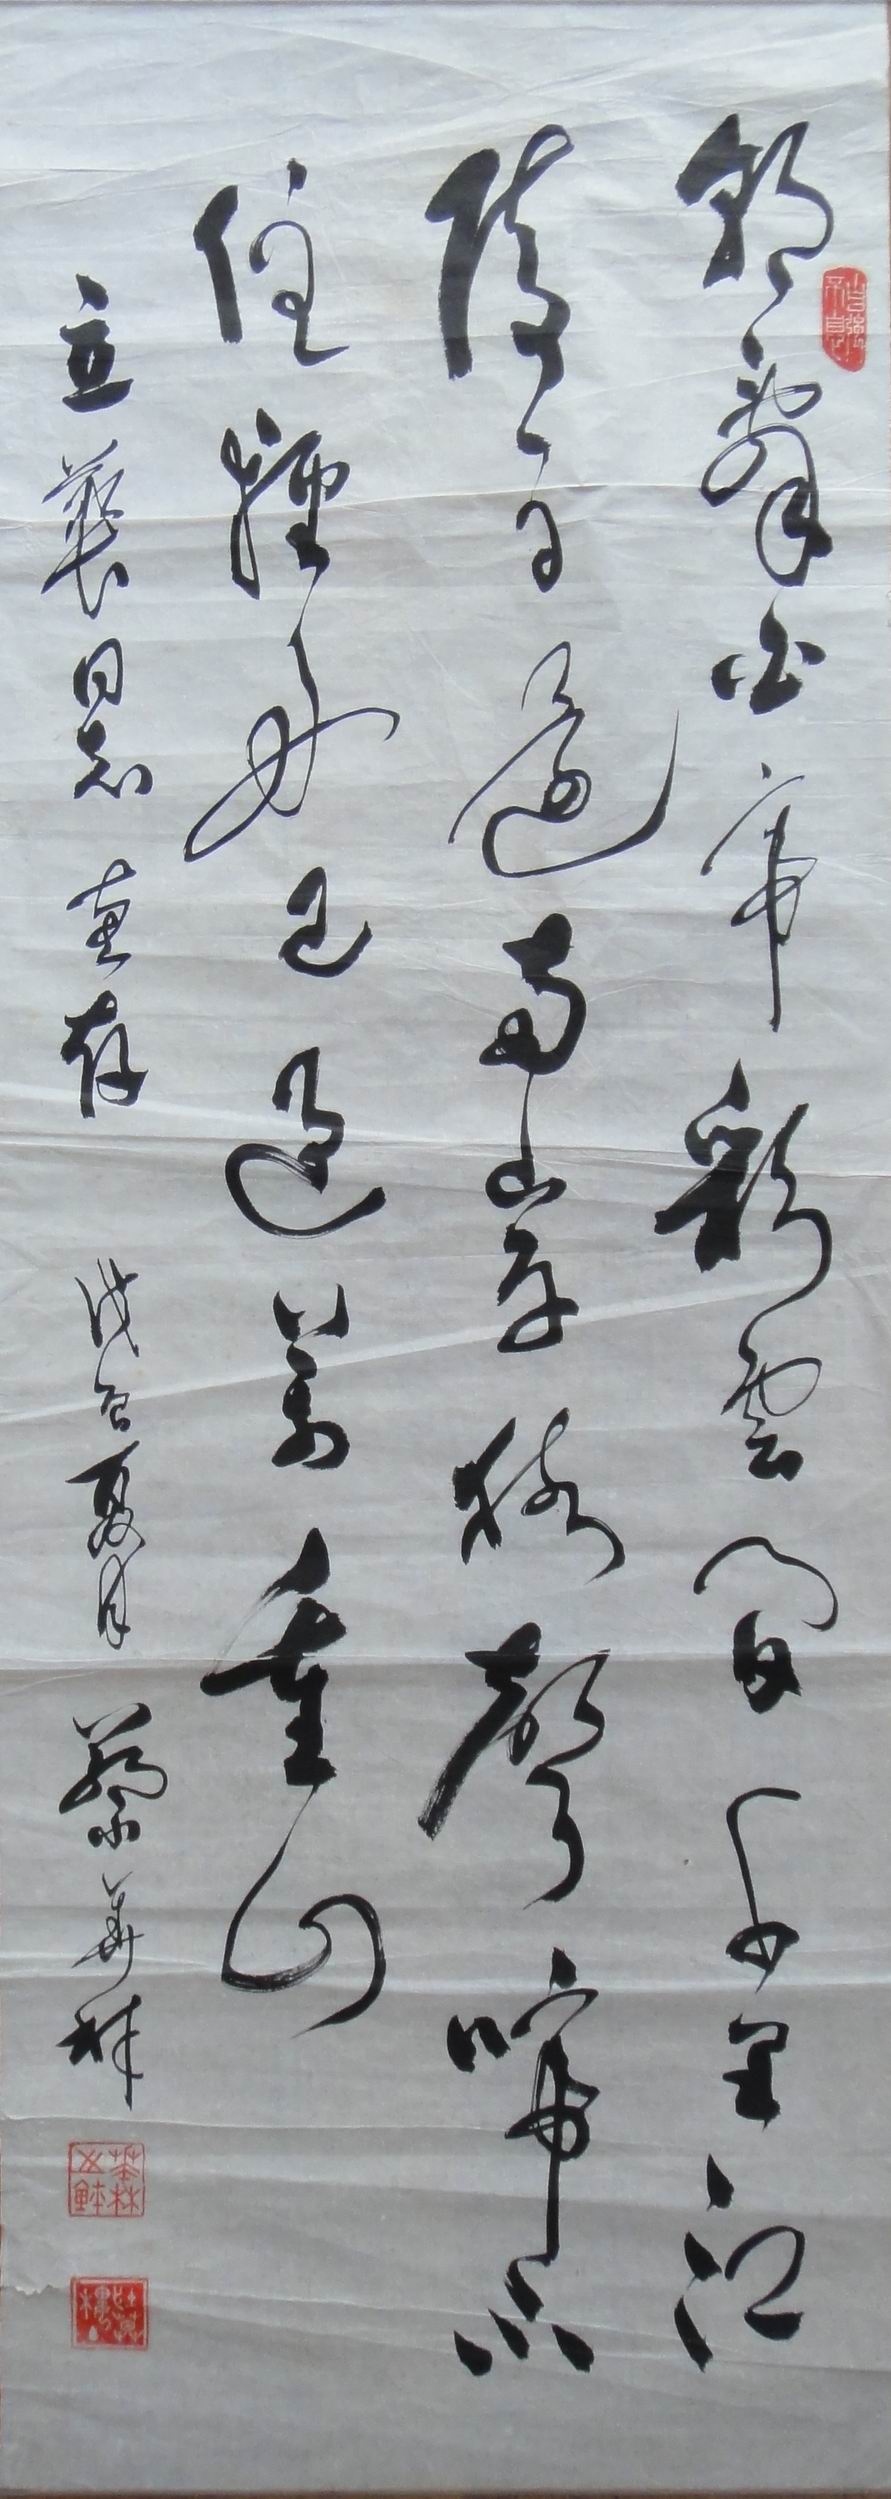 自強不息
朝辭白帝彩雲間千里江
陵一日還兩岸猿聲啼不
住輕舟已過萬重山
立 同志 惠存 戊 夏月 蔡華林
華林